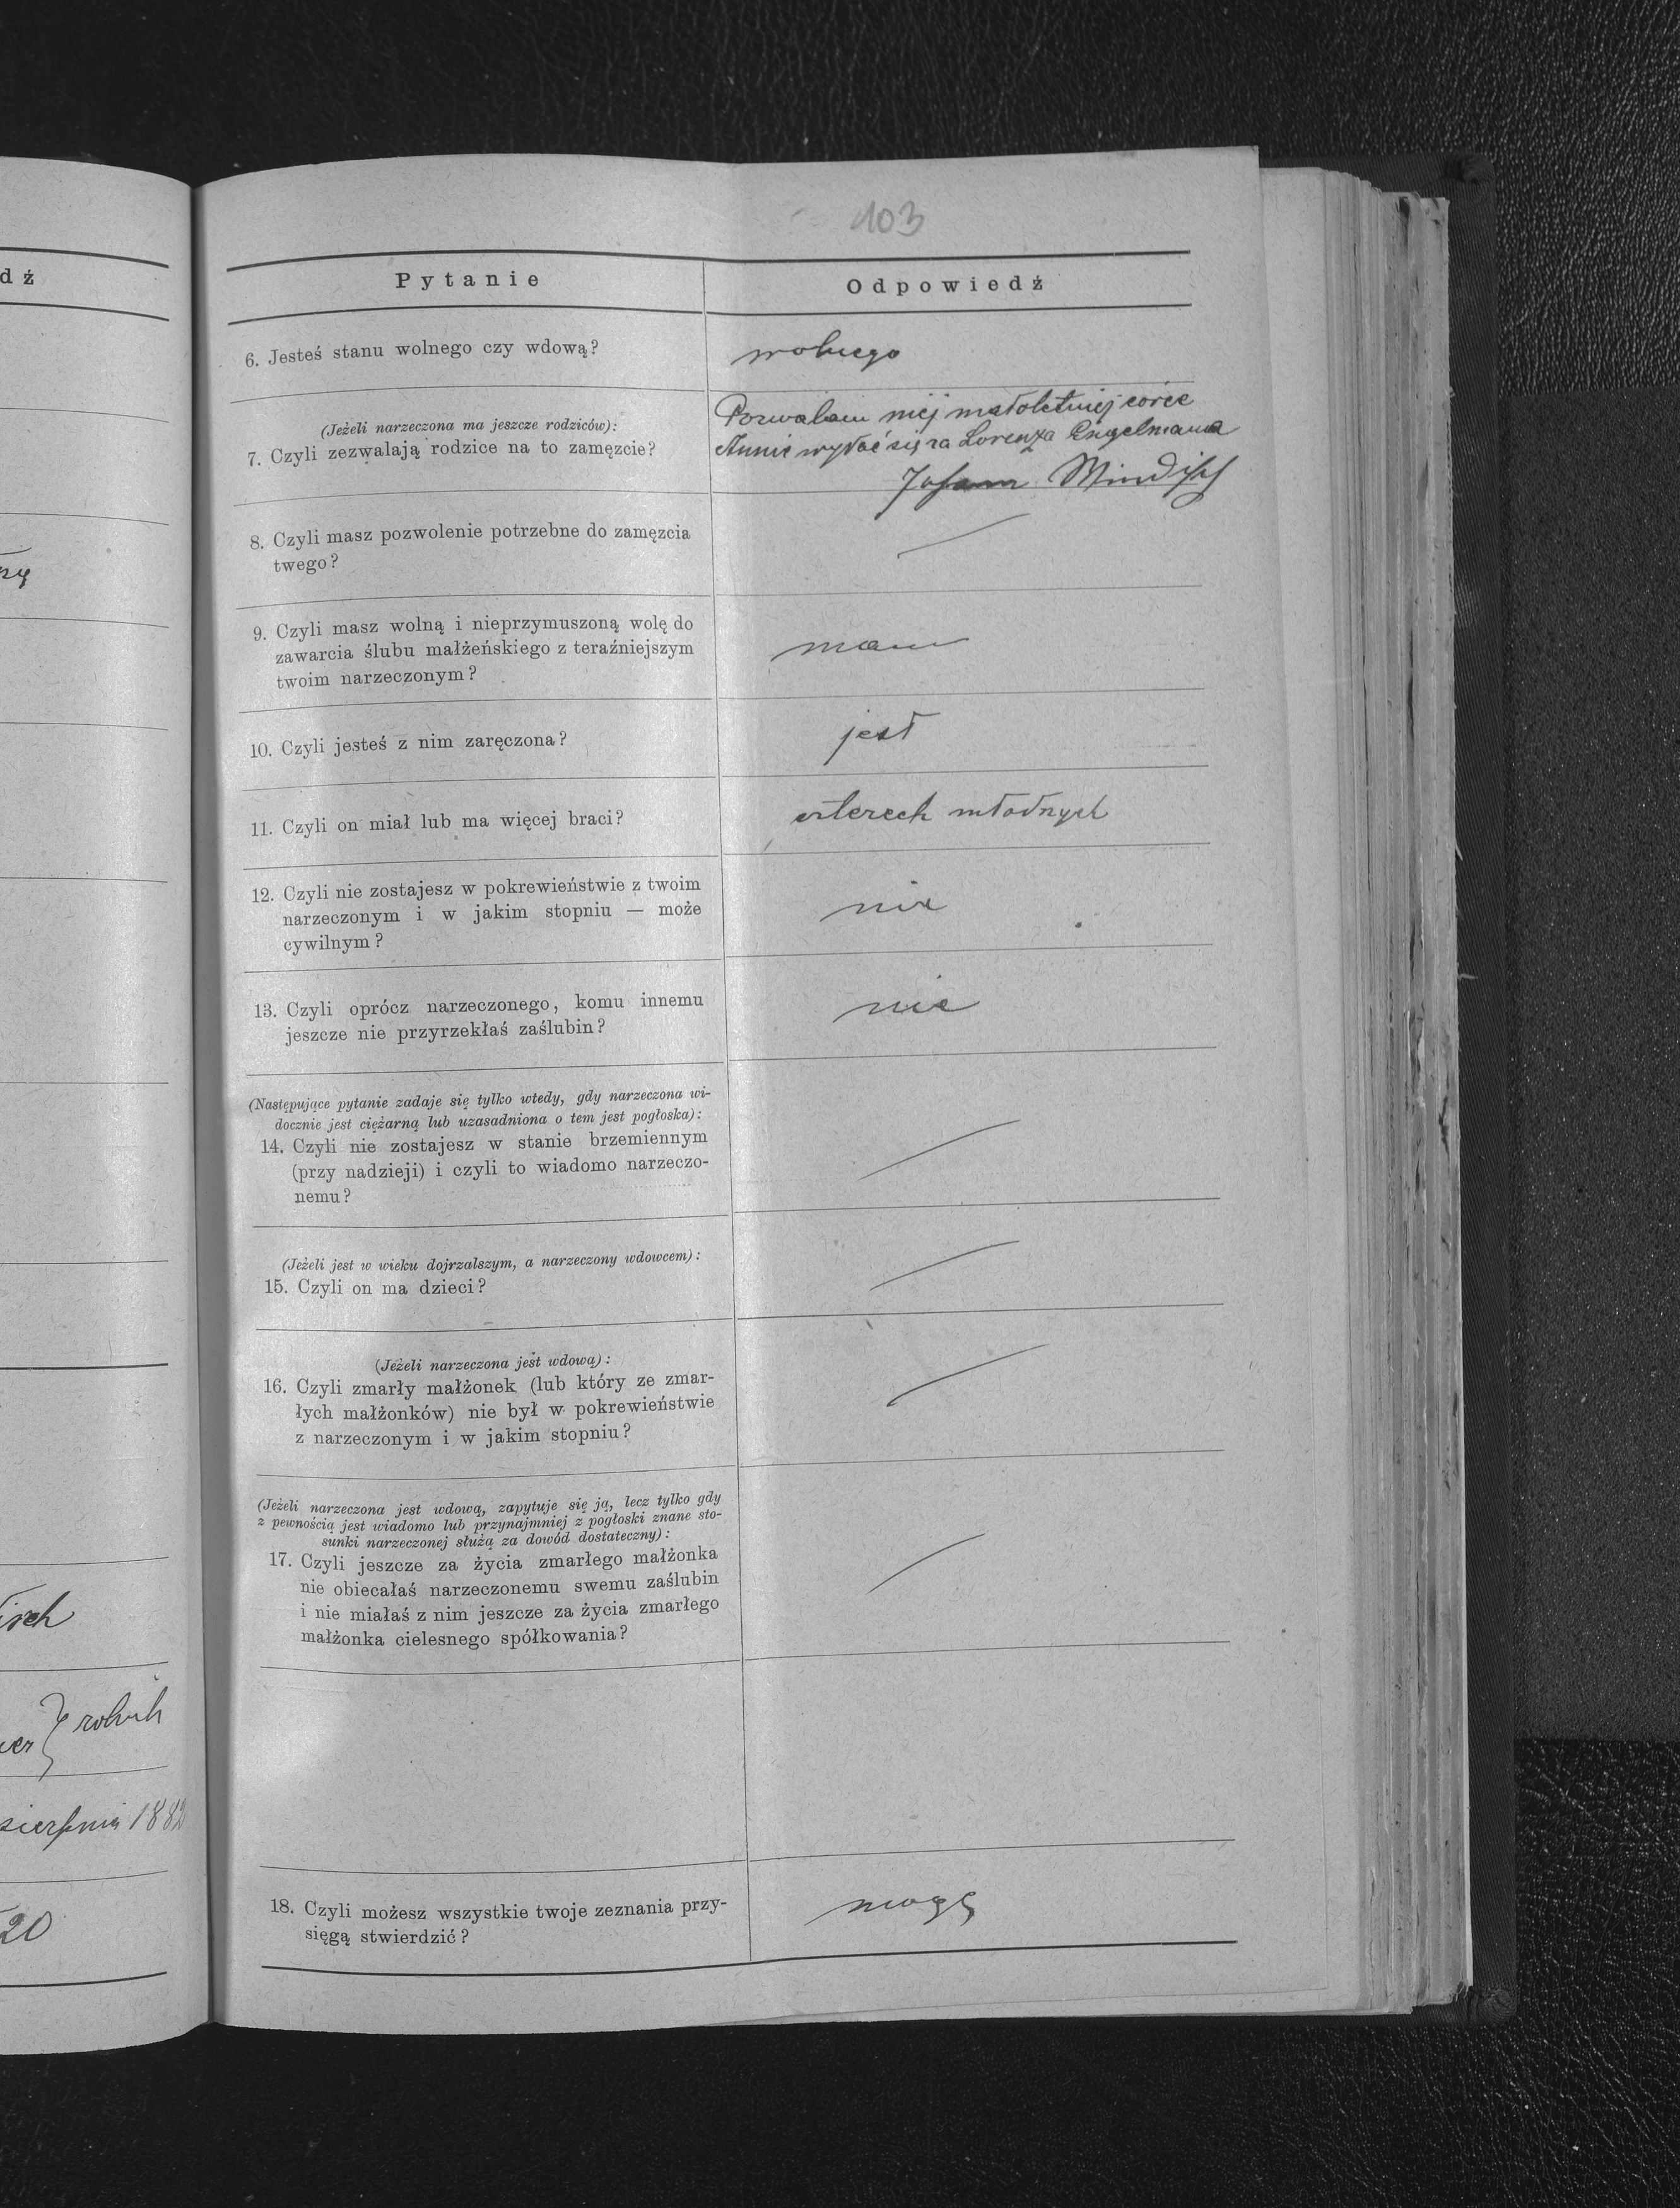 dź
ny
isch
wer } rolnik
sierpnia 1882
20
103
Pytanie
Odpowiedź
6. Jesteś stanu wolnego czy wdową?
wolnego
(Jeżeli narzeczona ma jeszcze rodziców):
7. Czyli zezwalają rodzice na to zamęzcie?
Pozwalam mej małoletniej córce
Annie wydać się za Lorenza Engelmanna
Johann Windisch
8. Czyli masz pozwolenie potrzebne do zamęzcia
twego?
9. Czyli masz wolną i nieprzymuszoną wolę do
zawarcia ślubu małżeńskiego z teraźniejszym
twoim narzeczonym?
mam
10. Czyli jesteś z nim zaręczona?
jest
11. Czyli on miał lub ma więcej braci?
czterech młodszych
12. Czyli nie zostajesz w pokrewieństwie z twoim
narzeczonym i w jakim stopniu — może
cywilnym?
nie
13. Czyli oprócz narzeczonego, komu innemu
jeszcze nie przyrzekłaś zaślubin?
nie
(Następujące pytanie zadaje się tylko wtedy, gdy narzeczona wi-
docznie jest ciężarną lub uzasadniona o tem jest pogłoska):
14. Czyli nie zostajesz w stanie brzemiennym
(przy nadzieji) i czyli to wiadomo narzeczo-
nemu?
(Jeżeli jest w wieku dojrzalszym, a narzeczony wdowcem):
15. Czyli on ma dzieci?
(Jeżeli narzeczona jest wdową):
16. Czyli zmarły małżonek (lub który ze zmar-
łych małżonków) nie był w pokrewieństwie
z narzeczonym i w jakim stopniu?
(Jeżeli narzeczona jest wdową, zapytuje się ją, lecz tylko gdy
z pewnością jest wiadomo lub przynajmniej z pogłoski znane sto-
sunki narzeczonej służą za dowód dostateczny):
17. Czyli jeszcze za życia zmarłego małżonka
nie obiecałaś narzeczonemu swemu zaślubin
i nie miałaś z nim jeszcze za życia zmarłego
małżonka cielesnego spółkowania?
18. Czyli możesz wszystkie twoje zeznania przy-
sięgą stwierdzić?
mogę